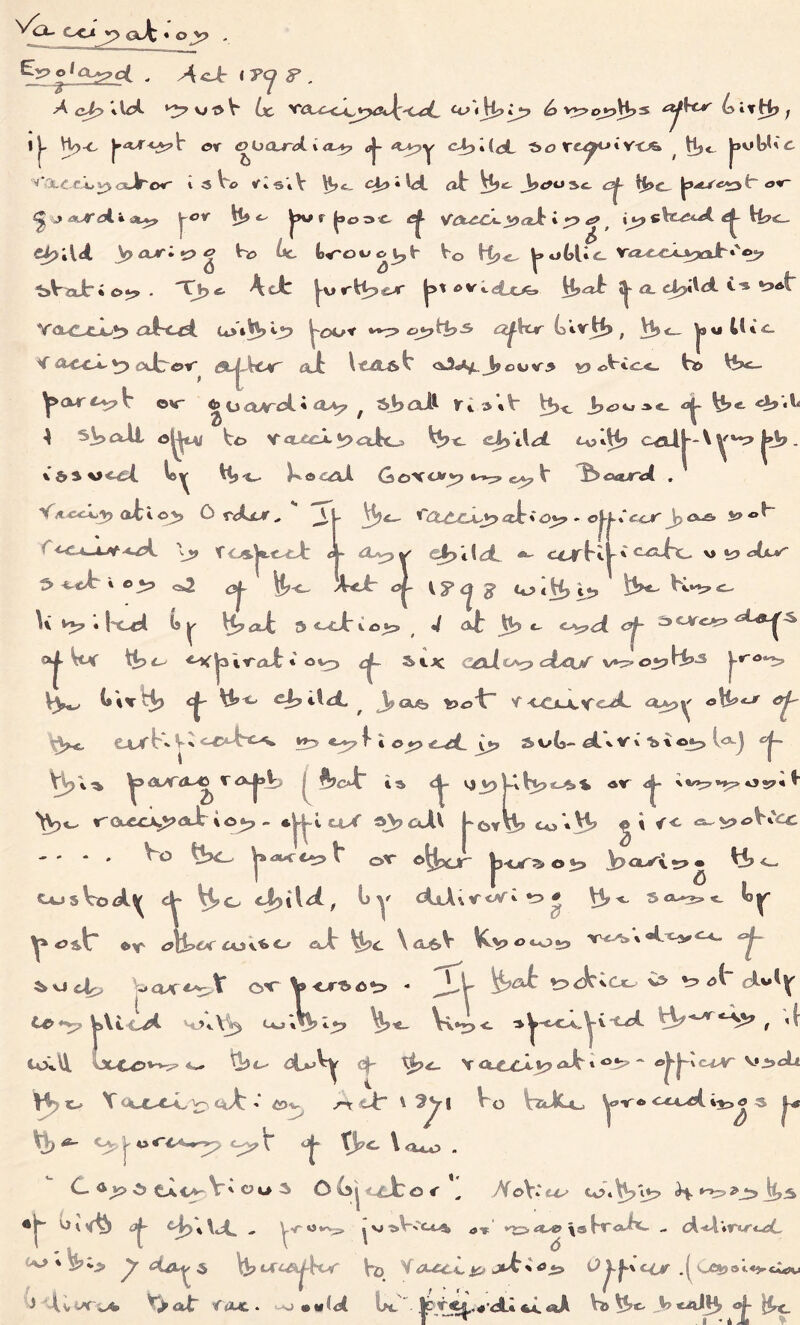 Vaccination .
England . Act 1898.
A child must be vaccinated within 6 months after birth,
if the parent or guardian of any child so requires, the public
vaccinator is to visit the child at the house of the parent or
guardian for the purpose of vaccinating, instead of the
child having to be brought to the public vaccination
station . The Act further provides that if a child is not
vaccinated within four months after birth, the public
vaccinator, after at least 24 hours notice to the
parent or guardian, shall visit the house of the chil
& shall offer to vaccinate the child with calf-lymph .
issued by the Local Government Board .
Vaccination Order. " If the vaccination-officer has not
received in respect of any child a certificate under
section 2 of the Act of 1898 within the time
limited by that section, & at the end of seven days
after the expiration of six calendar months from
the birth of the child, has not received any other of
the certificates mentioned in sub-division (a) of
this paragraph (that is of unfitness or of immunit
the vaccination-officer shall forthwith give a notice
- - - . to the parent or other person having the
custody of the child, by delivering the same by
post or otherwise at the last known residence of
such parent or person . If that notice is not duly
complied with within the time specified therein, it
will become the duty of the vaccination-officer unde
the Vaccination Act 1871 to take proceedings fo
the enforcement of the law .
" Conscientious Objector ". Notice within 4 months
of birth of child . from justices or magistrate . delivered
within 7 days thereafter to Vaccination Officer . (
believes that vac. would be prejudicial to the health of the